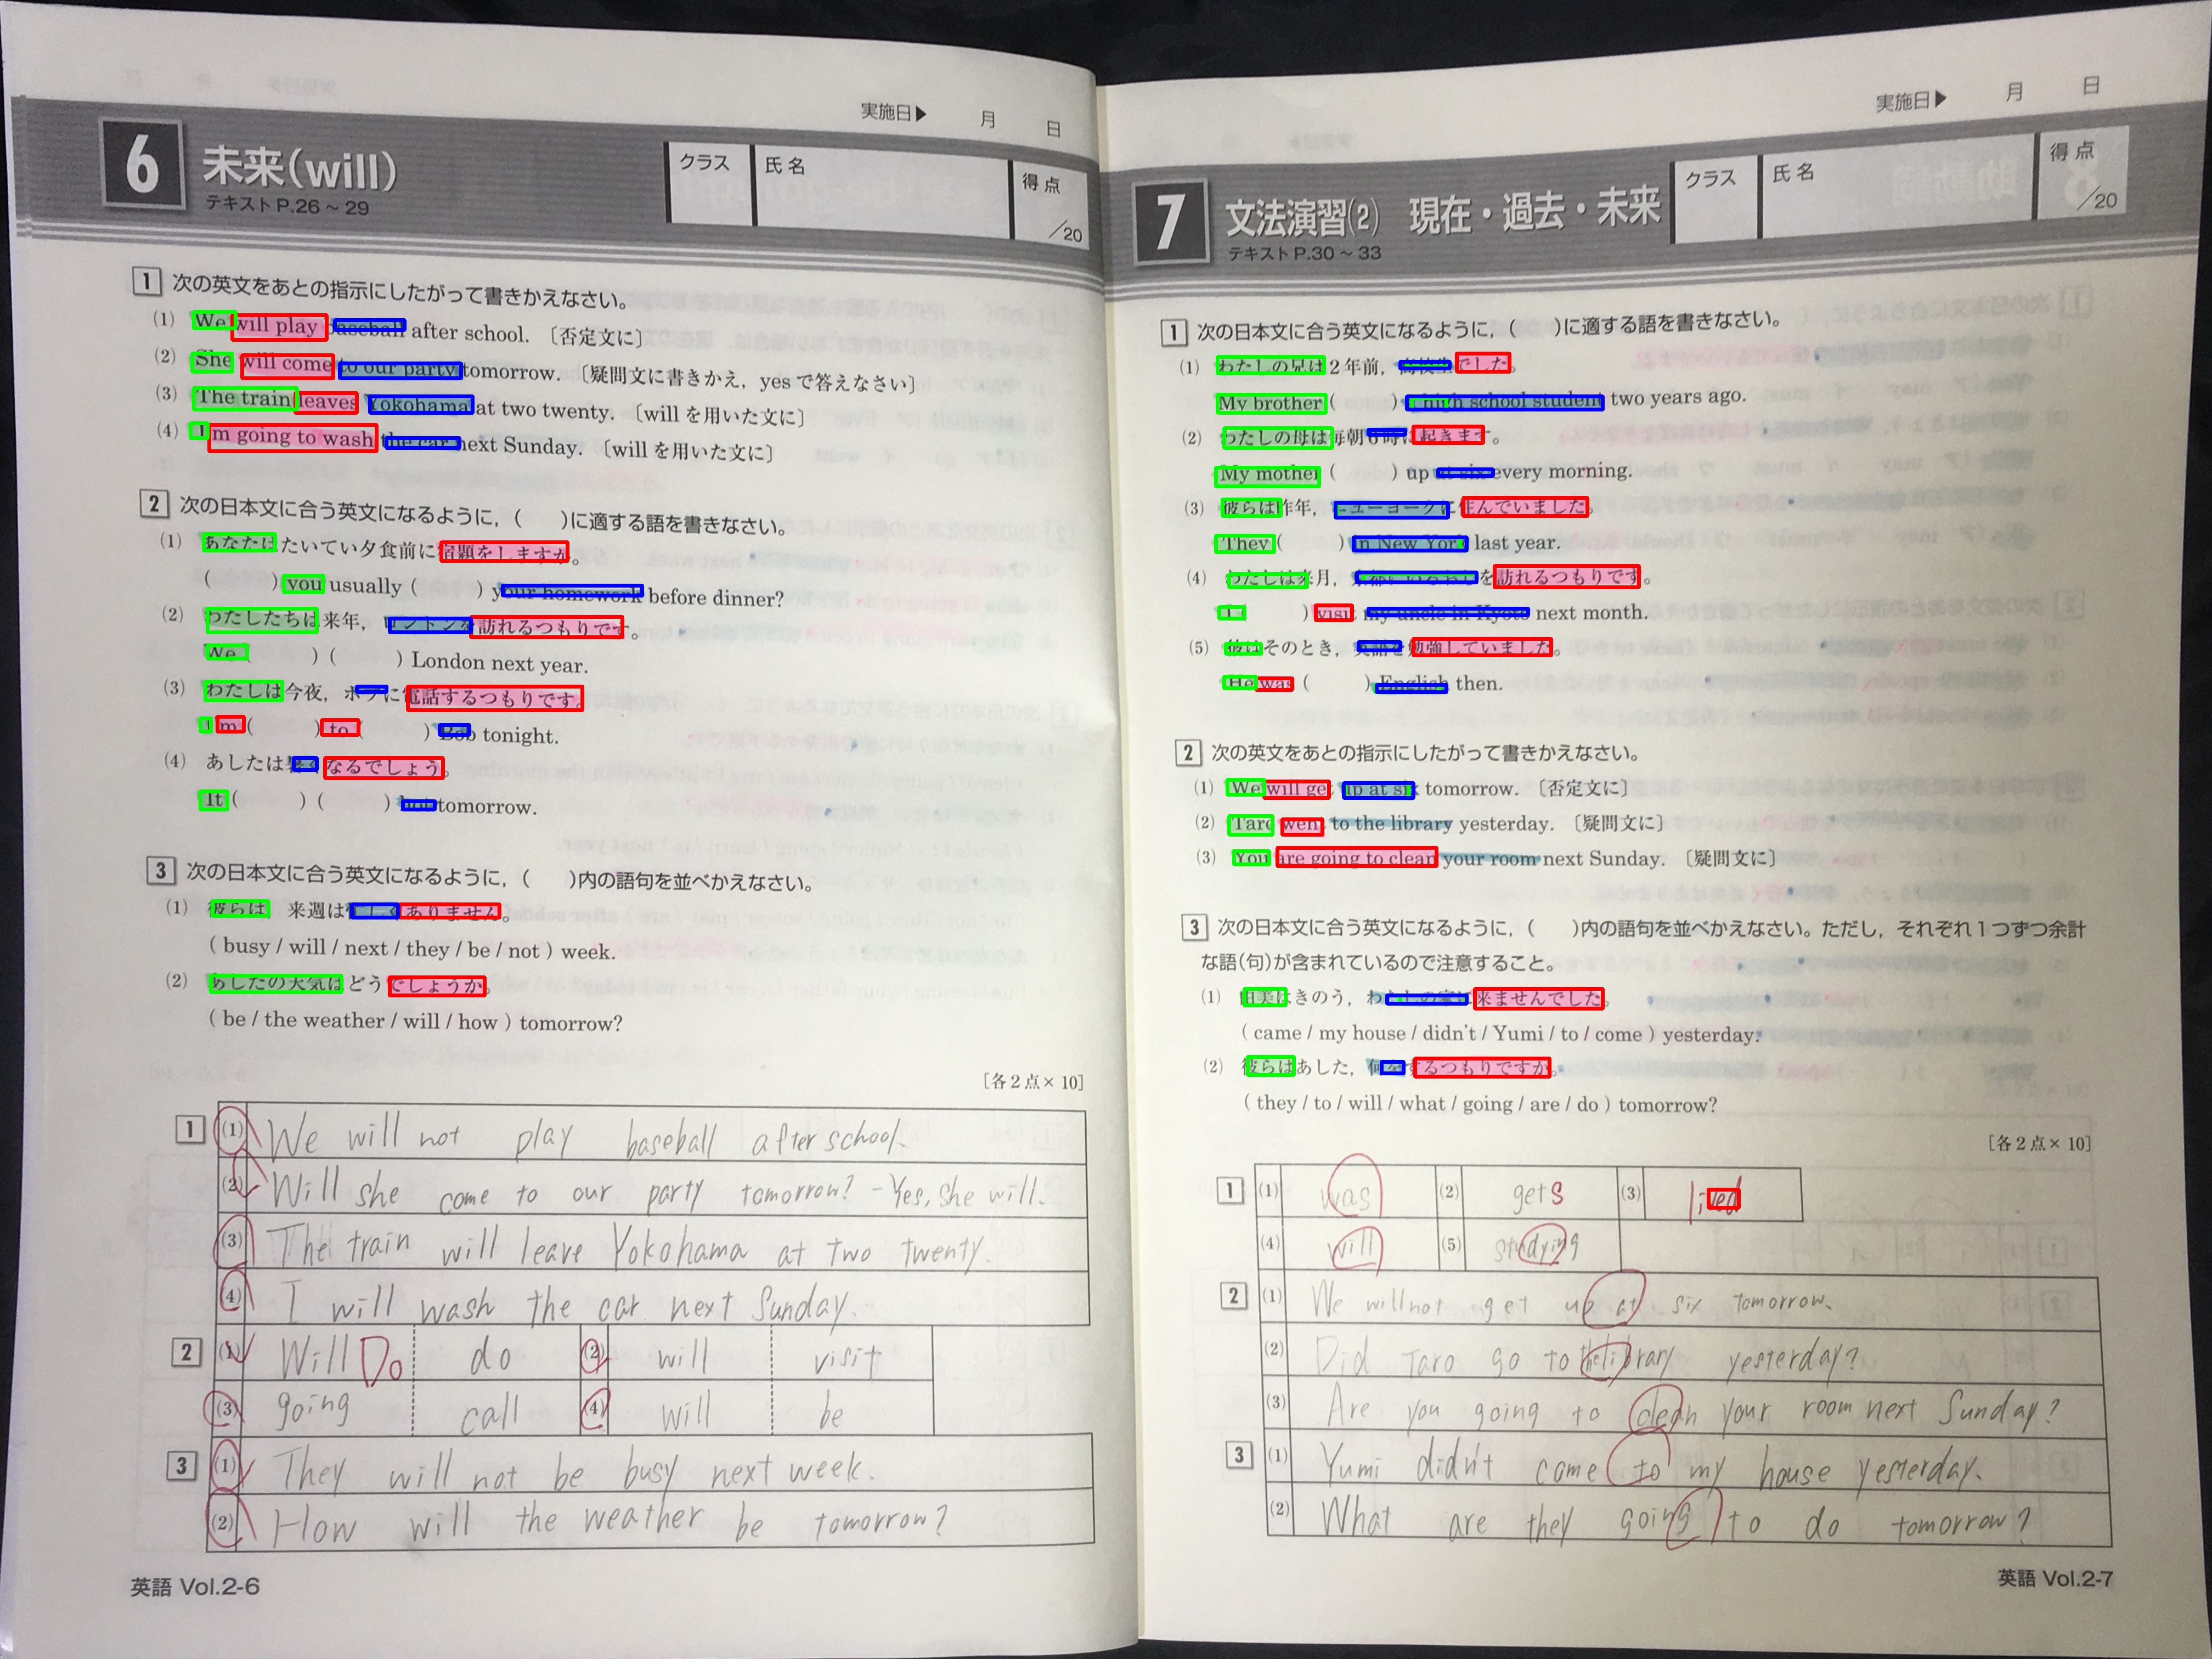 実施日▶ 月 日
6 未来(will)
テキストP.26~29
クラス 氏名 得点 /20
1 次の英文をあとの指示にしたがって書きかえなさい。
(1) We will play baseball after school. 〔否定文に〕
(2) She will come to our party tomorrow. 〔疑問文に書きかえ, yesで答えなさい〕
(3) The train leaves Yokohama at two twenty. 〔willを用いた文に〕
(4) I'm going to wash the car next Sunday. 〔willを用いた文に〕
2 次の日本文に合う英文になるように, ( )に適する語を書きなさい。
(1) あなたはたいてい夕食前に宿題をしますか。
( ) you usually ( ) your homework before dinner?
(2) わたしたちは来年, ロンドンを訪れるつもりです。
We ( ) ( ) London next year.
(3) わたしは今夜, ボブに電話するつもりです。
I'm ( ) to ( ) Bob tonight.
(4) あしたは暑くなるでしょう。
It ( ) ( ) hot tomorrow.
3 次の日本文に合う英文になるように, ( )内の語句を並べかえなさい。
(1) 彼らは 来週は忙しくありません。
( busy / will / next / they / be / not ) week.
(2) あしたの天気はどうでしょうか。
( be / the weather / will / how ) tomorrow?
[各2点×10]
1 (1) We will not play baseball after school.
(2) Will she come to our party tomorrow? - Yes, she will.
(3) The train will leave Yokohama at two twenty.
(4) I will wash the car next Sunday.
2 (1) Will Do do (2) will visit
(3) going call (4) will be
3 (1) They will not be busy next week.
(2) How will the weather be tomorrow?
英語 Vol.2-6
実施日▶ 月 日
7 文法演習(2) 現在・過去・未来
テキストP.30~33
クラス 氏名 得点 /20
1 次の日本文に合う英文になるように, ( )に適する語を書きなさい。
(1) わたしの兄は2年前, 高校生でした。
My brother ( ) a high school student two years ago.
(2) わたしの母は毎朝6時に起きます。
My mother ( ) up at six every morning.
(3) 彼らは昨年, ニューヨークに住んでいました。
They ( ) in New York last year.
(4) わたしは来月, 京都にいるおじを訪れるつもりです。
I ( ) visit my uncle in Kyoto next month.
(5) 彼はそのとき, 英語を勉強していました。
He was ( ) English then.
2 次の英文をあとの指示にしたがって書きかえなさい。
(1) We will get up at six tomorrow. 〔否定文に〕
(2) Taro went to the library yesterday. 〔疑問文に〕
(3) You are going to clean your room next Sunday. 〔疑問文に〕
3 次の日本文に合う英文になるように, ( )内の語句を並べかえなさい。ただし, それぞれ1つずつ余計
な語(句)が含まれているので注意すること。
(1) 由美はきのう, わたしの家に来ませんでした。
( came / my house / didn't / Yumi / to / come ) yesterday.
(2) 彼らはあした, 何をするつもりですか。
( they / to / will / what / going / are / do ) tomorrow?
[各2点×10]
1 (1) was (2) gets (3) lived
(4) will (5) studying
2 (1) We will not get up at six tomorrow.
(2) Did Taro go to the library yesterday?
(3) Are you going to clean your room next Sunday?
3 (1) Yumi didn't come to my house yesterday.
(2) What are they going to do tomorrow?
英語 Vol.2-7